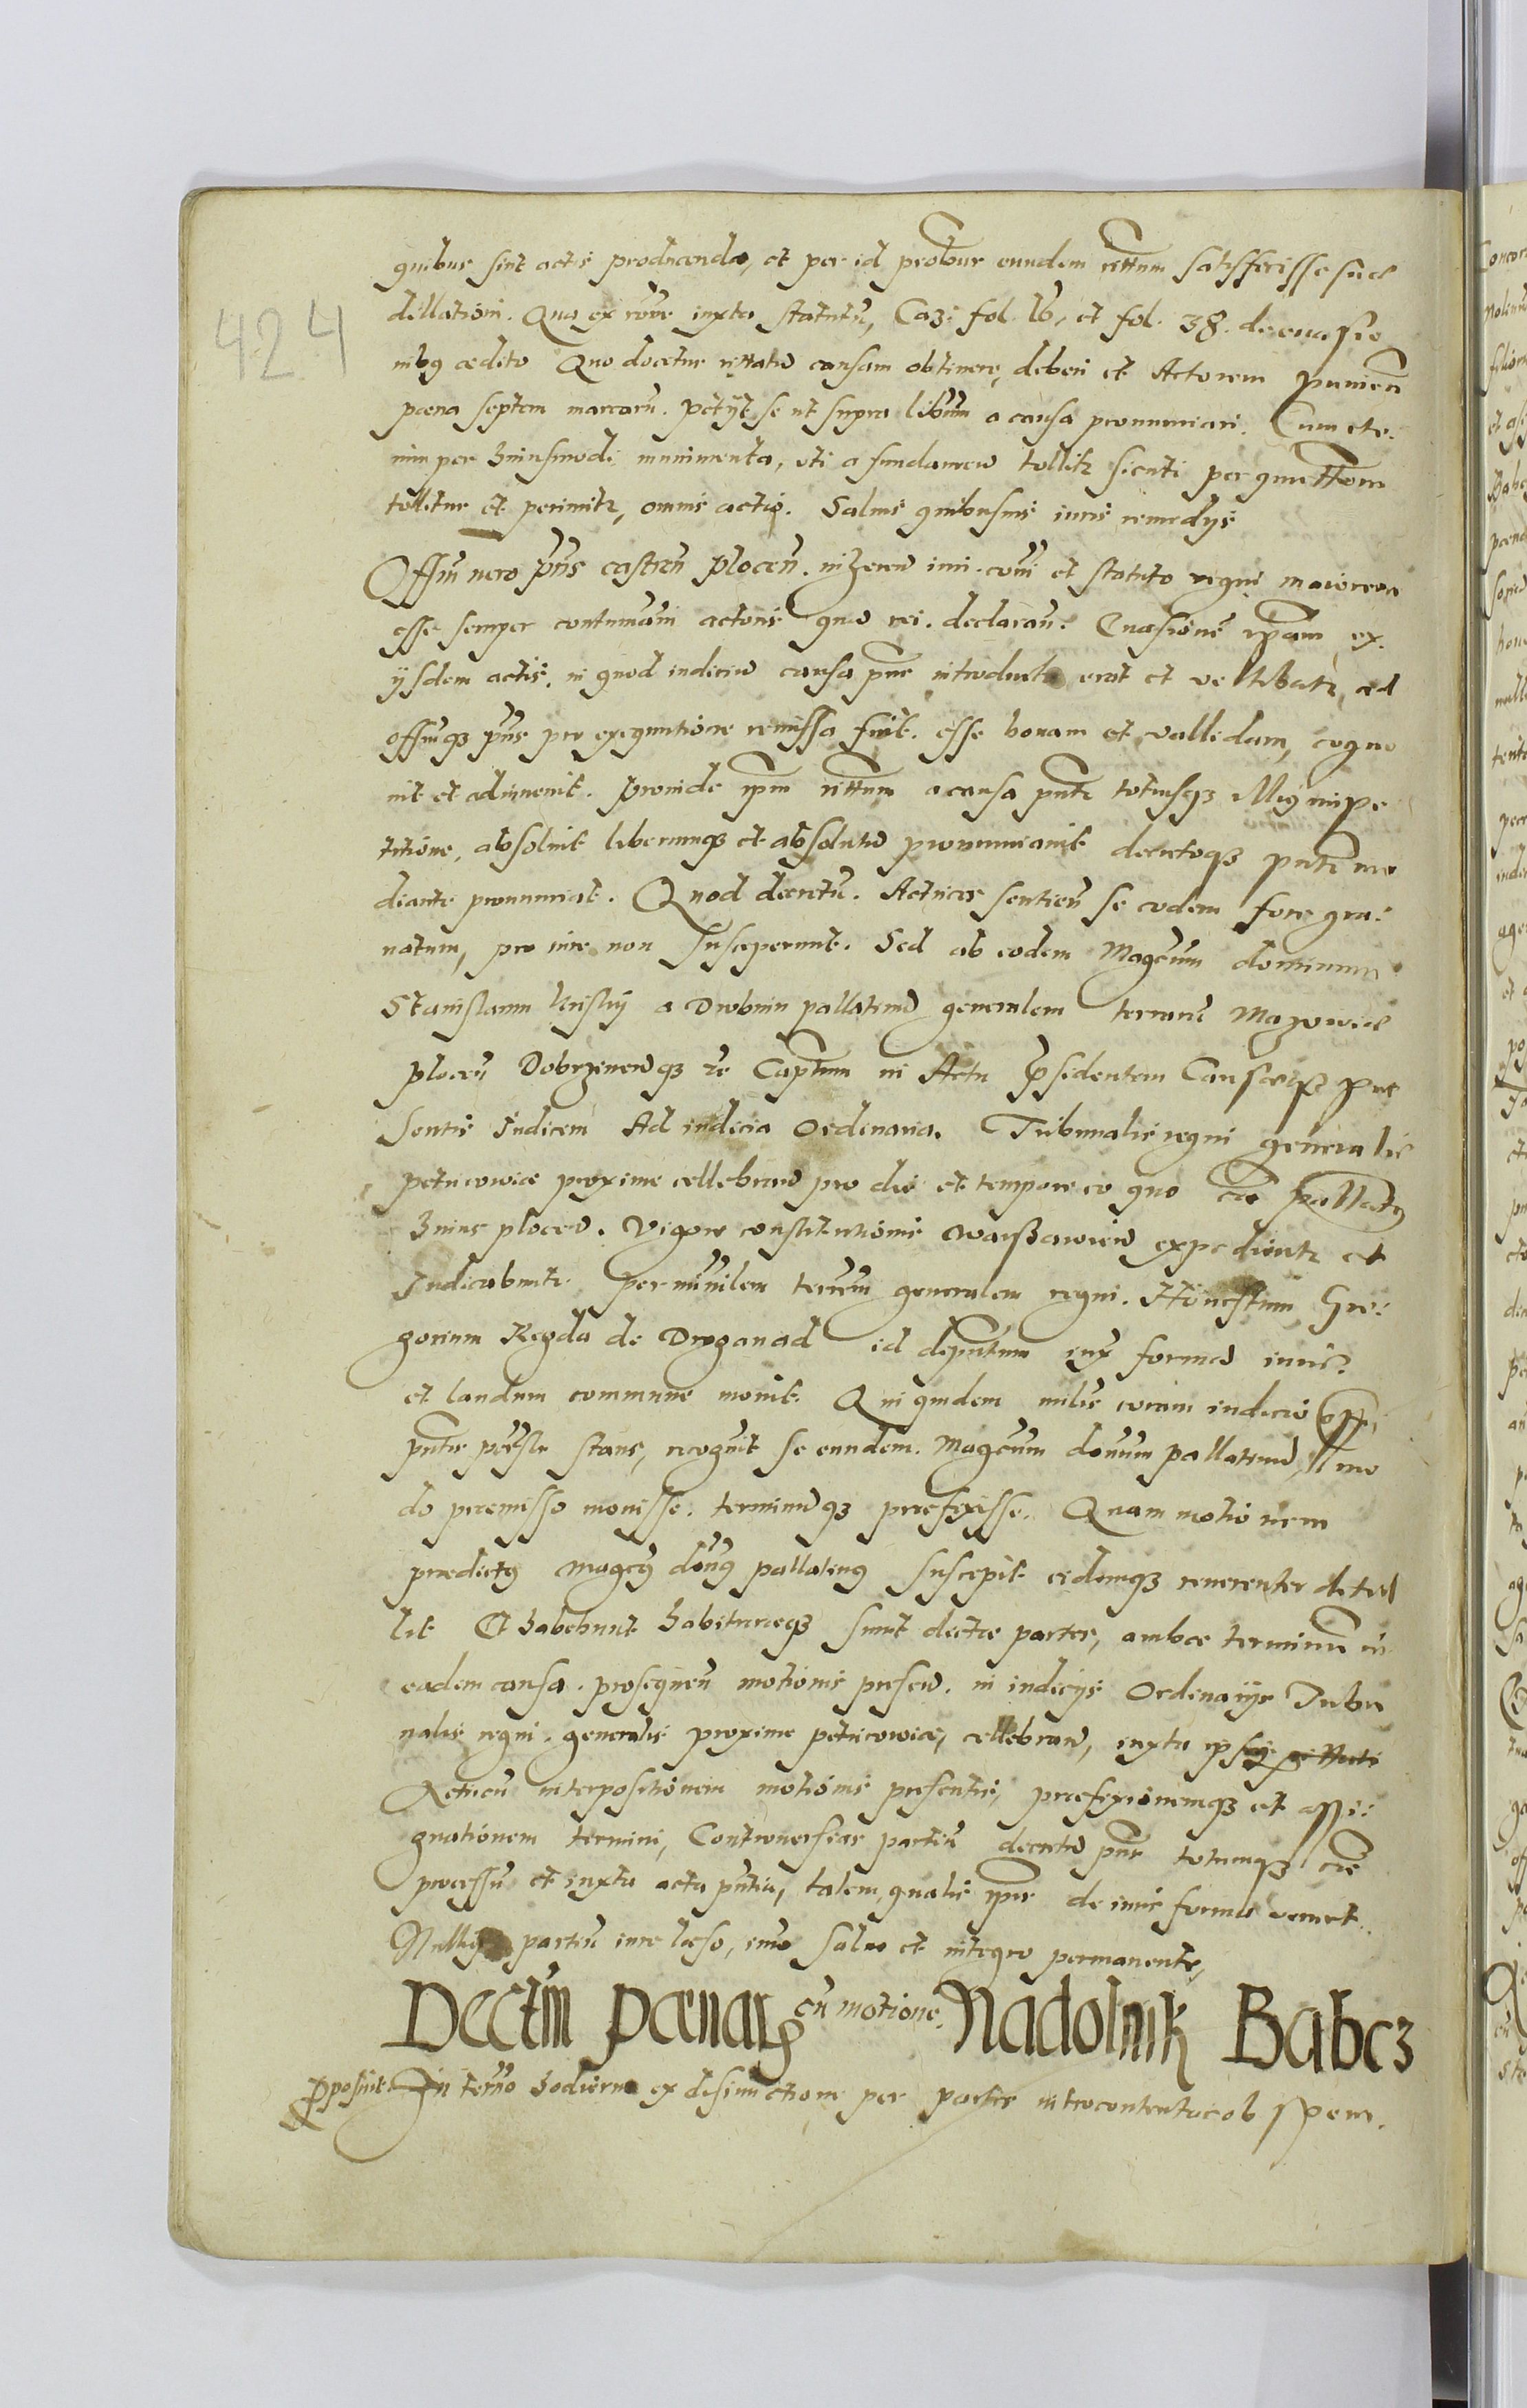 424
quibus sint actis producenda, et per id probatur eundem cittum satisfecisse suae
dillationi. Qua ex rone iuxta statutū, Cazi: fol. 16, et fol. 38. de euasio
nibq aedito Quo docetur cittatū causam obtinere, debere et Actorem punien
poena septem marcarū. Petijt se ut supra librum a causa pronunciari. Cum ete:
nim per huiusmodi munimenta, uti a fundamen tollitr sicuti per quittõem
tollitur et perimitr, omnis actio. Saluis quibusuis iuris remedijs
Offm uero pns castren plocen. inhaeren iuri cõmi et statuto regni maiorem
esse semper contumaciam actoris quã rei declarauit. Euasionē ipsam ex
ijsdem actis, in quod iudiciū causa pns introducta erat et uestibatr, ad
offmqz pns pro exequutione remissa fuit. esse bonam et vallidam, cogno
uit et adinuenit. Proinde ipm cittum a causa pnti totiusqz illiq impe
titione, absoluit liberumqz et absolutū pronunciauit decretoqz pnti me
diante pronunciat. Quod decretū. Actrices sentien se eodem fore gra:
uatum, pro iure non susceperunt. Sed ab eodem Magcum dominum
Stanislaum Kriski a Drobnin pallatinū generalem terrarū Mazowiae
plocen Dobrzinenqz &c Captum in Actu psidentem Causaeqz prae
sentis Iudicem Ad iudicia Ordinaria. Tribunalis regni generalis
petricowiae proxime cellebran pro die et tempore eo quo cae pallatq
huius plocen. Vigore constitutionis warszawien expedientr et
Iudicabuntr. per ministerialem terrum generalem regni. Honestum Gre:
gorium Kezda de Drozan ad id deputum iux formã iuris
et laudum commune mouit. Qui quidem milis coram iudicio offii
pntis pnter stans, recognit se eundem. Magcum dnum pallatinū, mo
do praemisso mouisse. terminūqz praefixisse. Quam motionem
praedictq Magcq dnq pallatinq suscepit eidemqz reuerenter detul
lit Et habebunt habituraeqz sunt dictae partes, ambae terminū in
eadem causa. prosequen motionis presen. in iudicijs Ordinarijs Tribu
nalis regni. generalis proxime petricowiae, cellebran, iuxta ipsiq cittati
Actricū interpositionem motionis presentis, praefixionemqz et assi:
gnationem termini, Controuersias partiū decretū pns totumqz cae
processū et iuxta acta pntia, talem, qualis ipse de iuris forma venerit.
Nulliq partiū iure laeso, imo saluo et integro permanente,
Decrtm paenar cū motione. Nadolnik Babcz
Pposuit In termo hodierno ex disiunctione per partes introcontentas ob spem.